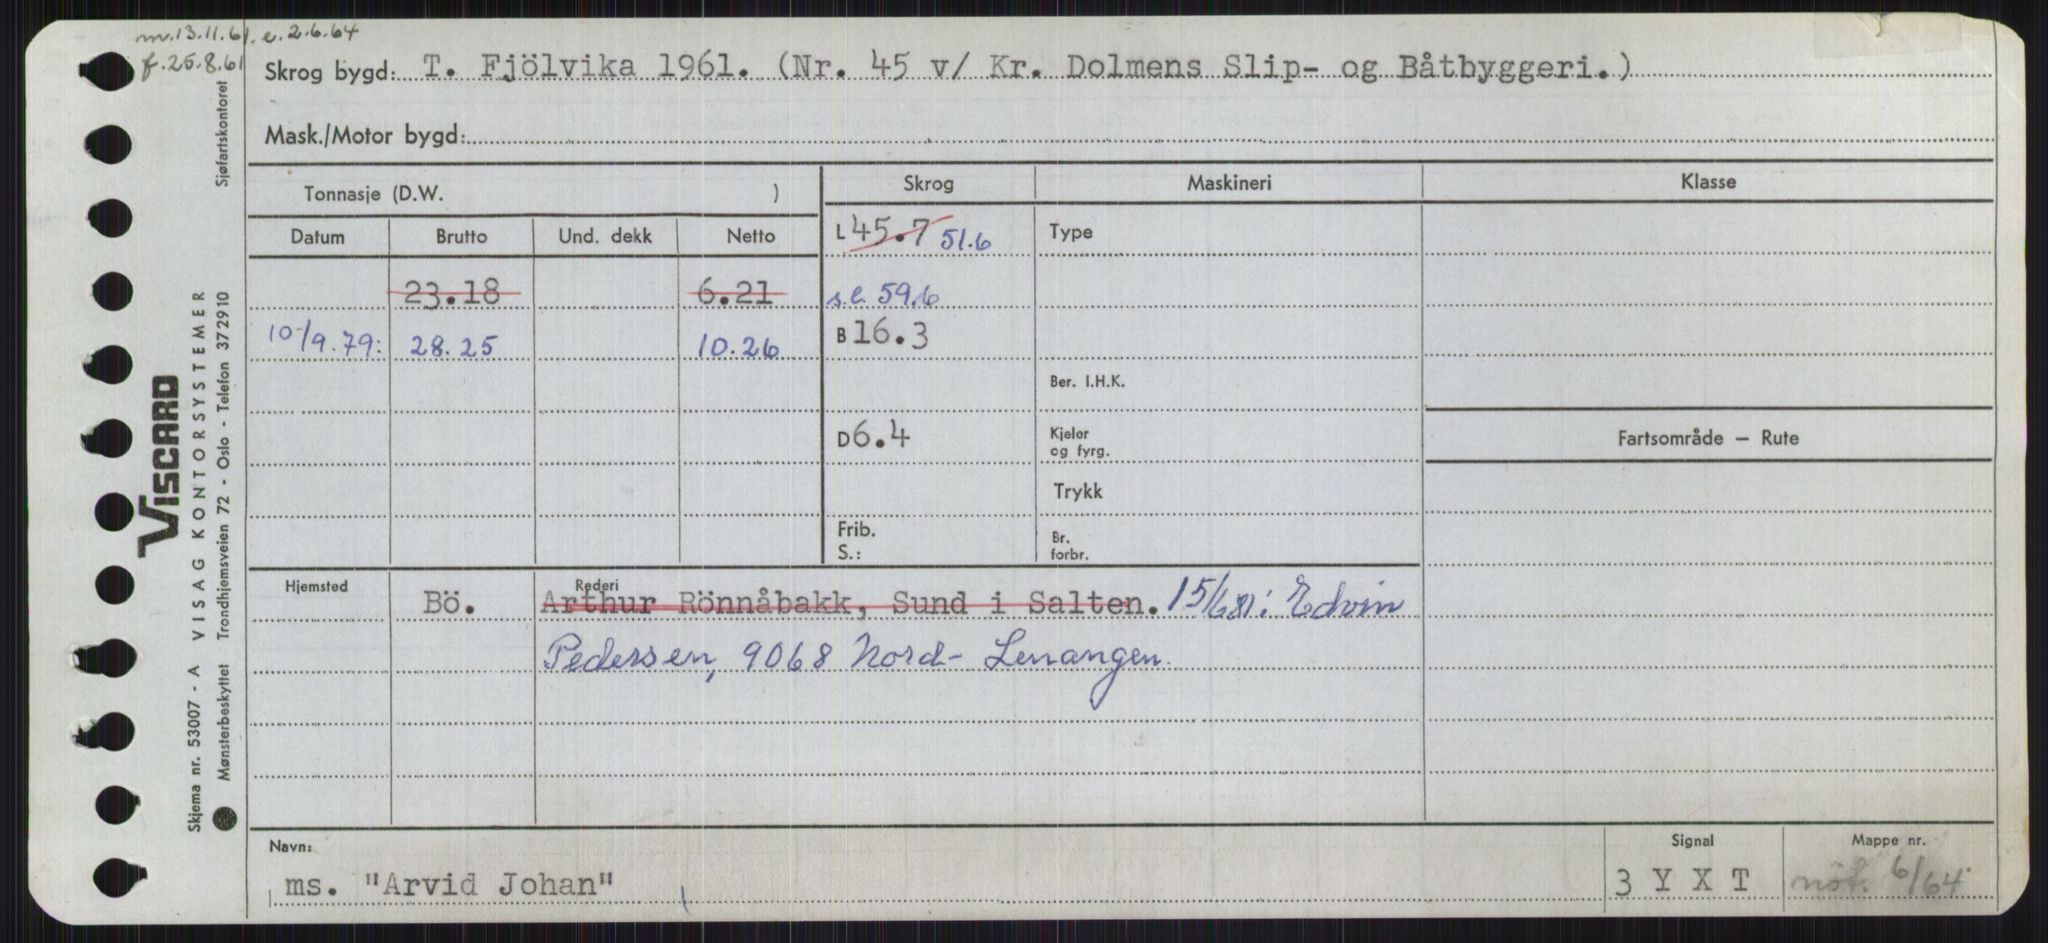 m.13.11.61. e. 2.6.64
f. 25.8.61
Skrog bygd: T. Fjölvika 1961. (Nr. 45 v/ Kr. Dolmens Slip- og Båtbyggeri.)
Mask./Motor bygd:
Tonnasje (D.W. )
Skrog Maskineri Klasse
Datum Brutto Und. dekk Netto
L 45.7 51.6 Type
23.18 6.21 s.l. 59.6
10/9.79: 28.25 10.26 B 16.3
Ber. I.H.K.
D 6.4 Kjeler og fyrg. Fartsområde — Rute
Trykk
Frib. S.: Br. forbr.
Hjemsted Rederi
Bö. Arthur Rönnåbakk, Sund i Salten. 15/681: Edvin
Pedersen, 9068 Nord-Lenangen.
Navn: Signal Mappe nr.
ms. "Arvid Johan" 3 Y X T nöt. 6/64
Sjøfartskontoret
VISCARD
Skjema nr. 53007 - A VISAG KONTORSYSTEMER
Mønsterbeskyttet Trondhjemsveien 72 - Oslo - Telefon 372910